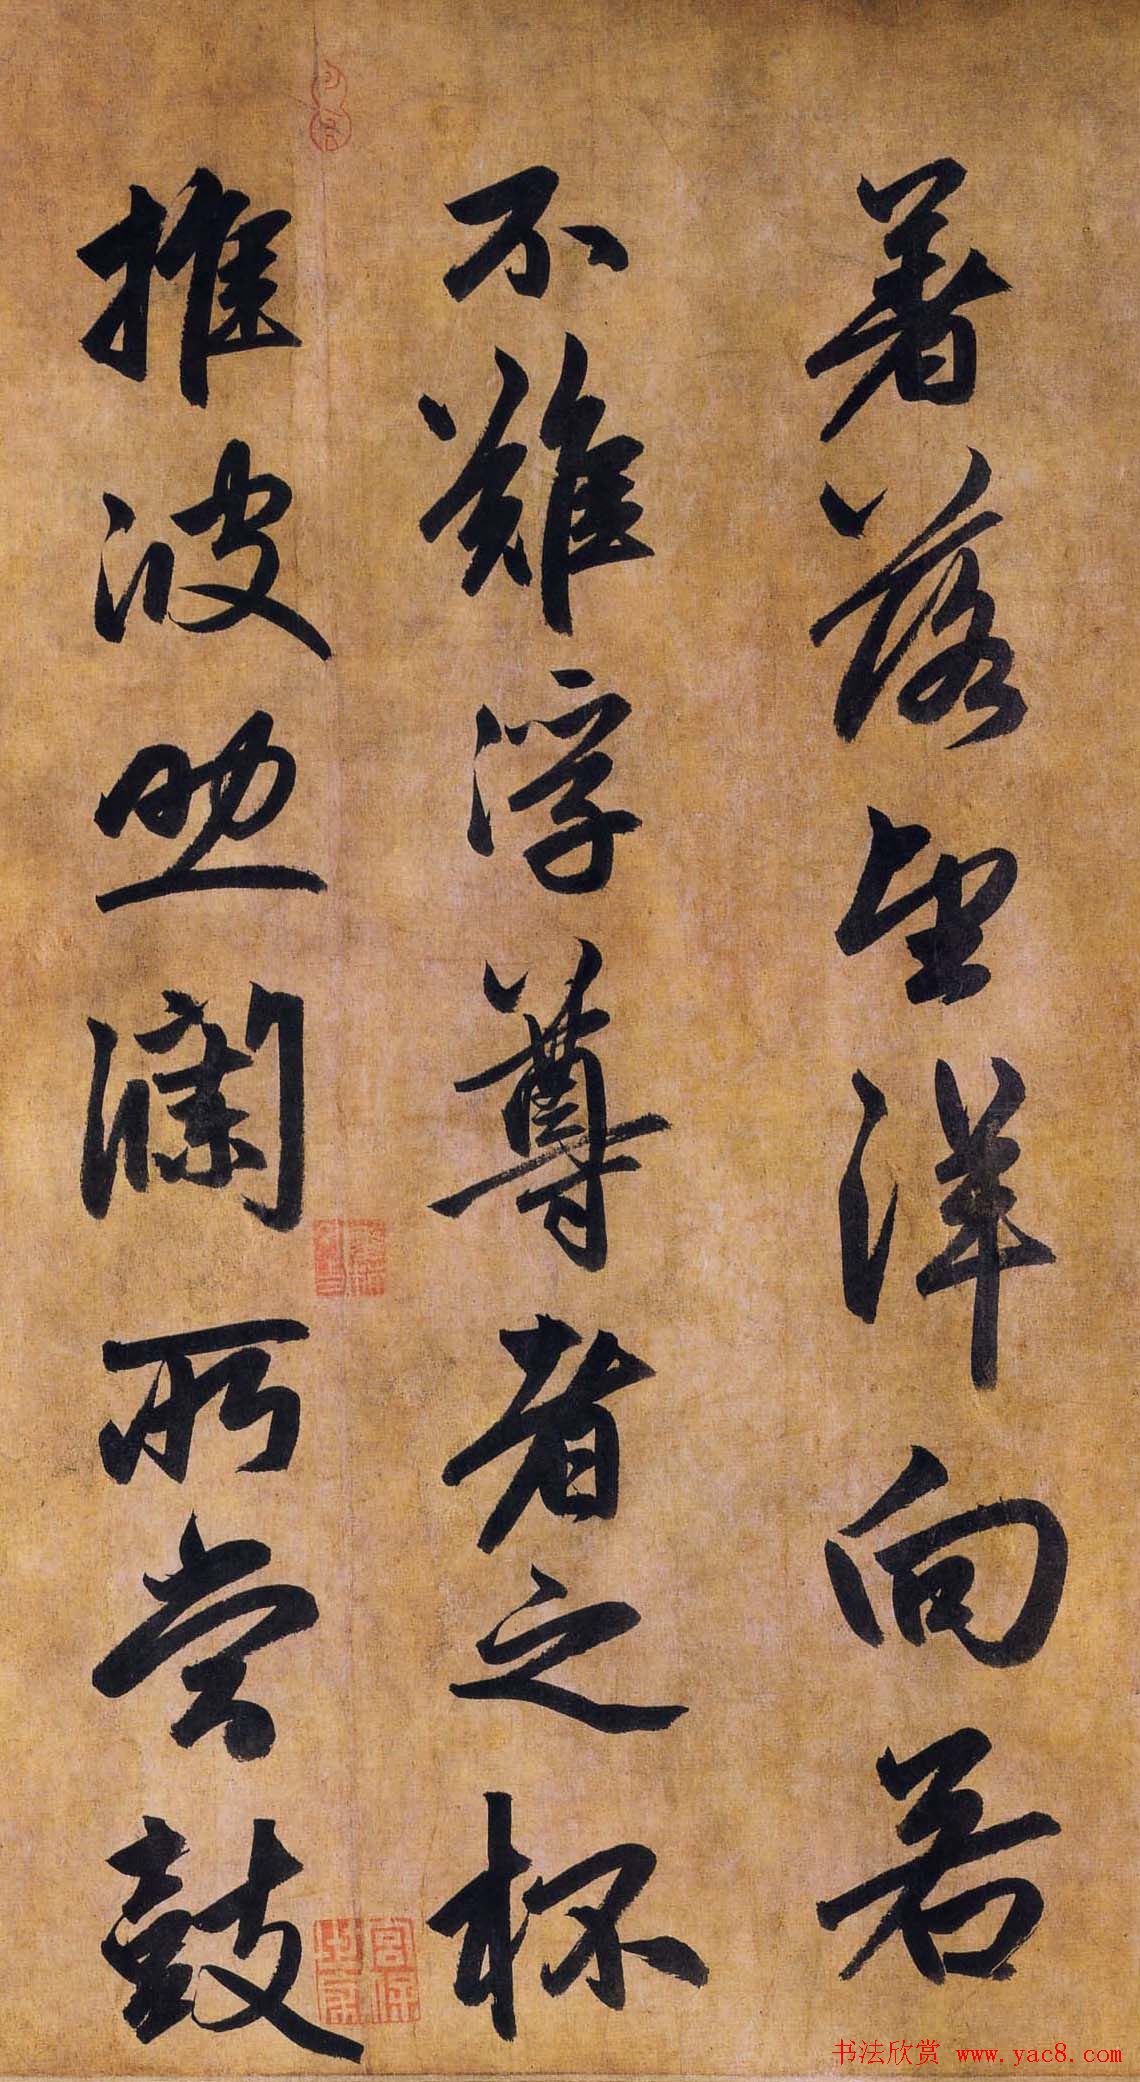 著落望洋向若
不難浮尊者之杯
推波助瀾所嘗鼓
书法欣赏 www.yac8.com